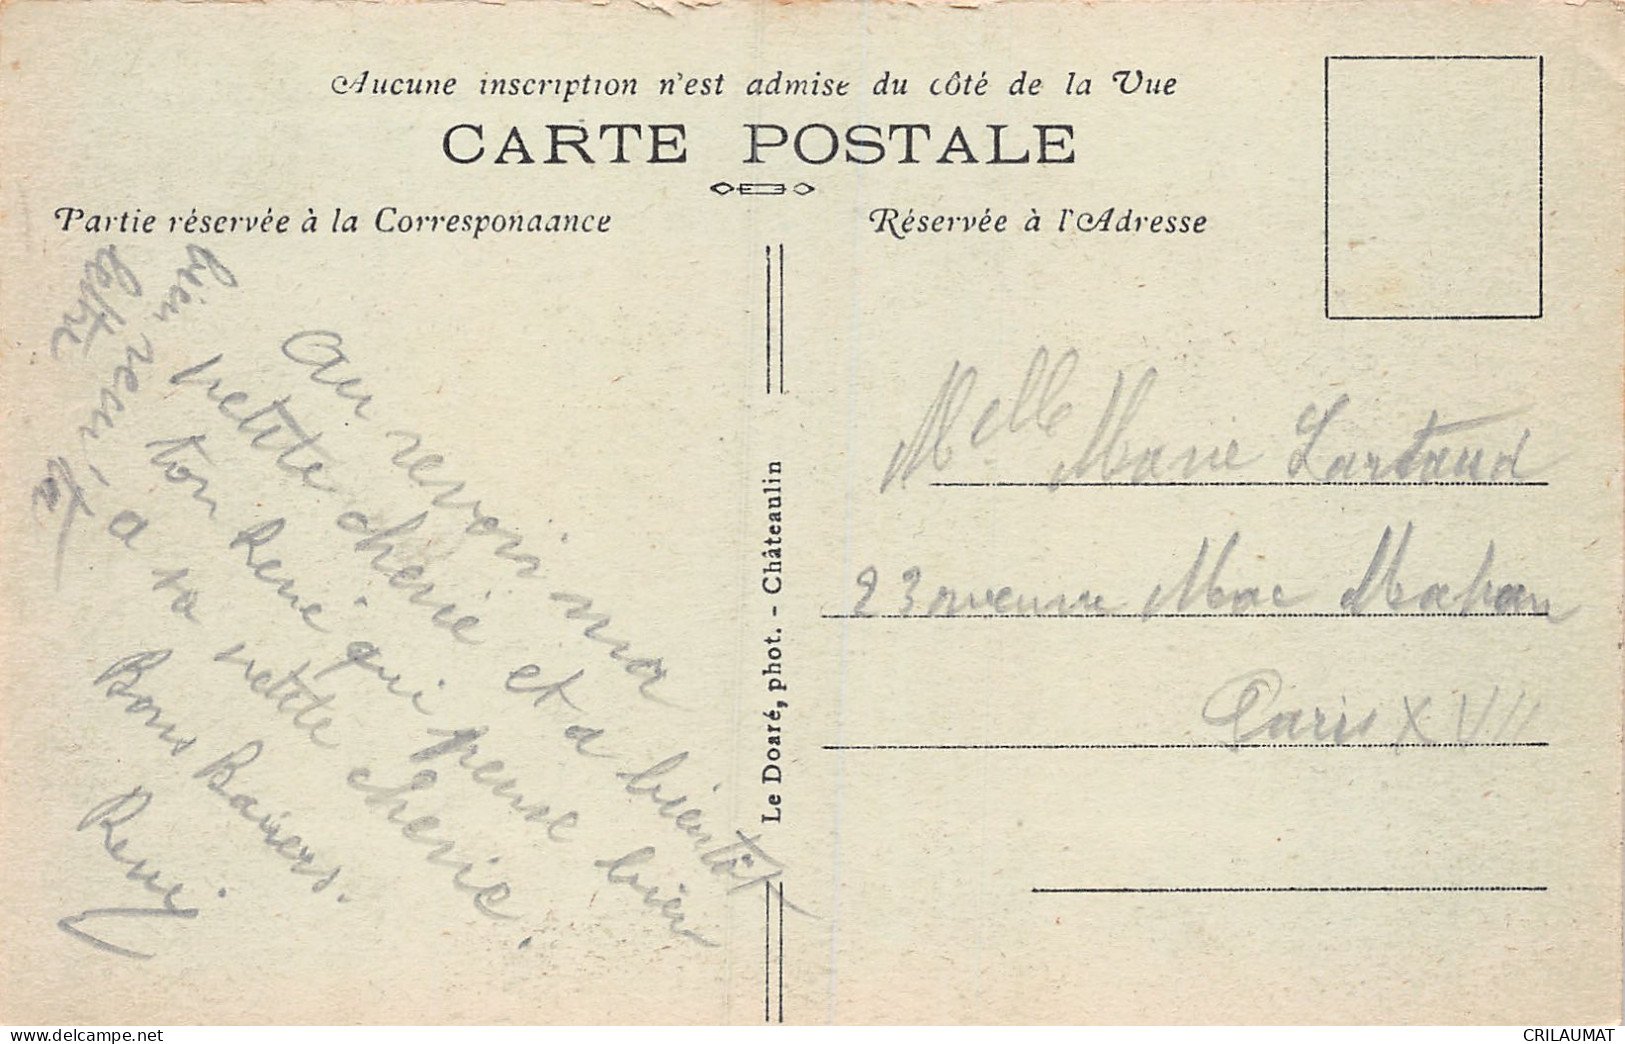 Aucune inscription n'est admise du côté de la Vue
CARTE POSTALE
Partie réservée à la Correspondance
Réservée à l'Adresse
bien recu ta
lettre
Au revoir ma
petite cherie et a bientôt
ton René qui pense bien
a sa petite cherie.
Bons Baisers.
René.
Le Doaré, phot. - Châteaulin
Melle Marie Lartaud
23 avenue Mac Mahon
Paris XVII
www.delcampe.net
CRILAUMAT